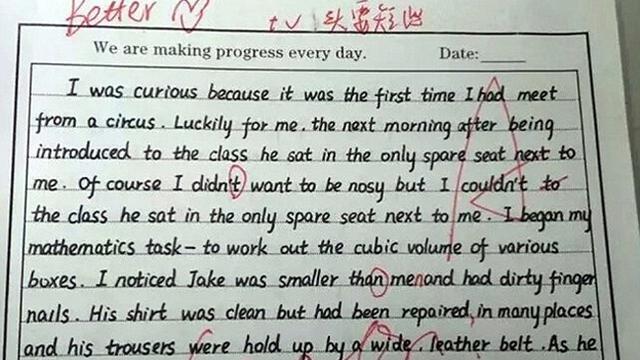 Better
t v 头要短出
We are making progress every day. Date:
I was curious because it was the first time I had meet
from a circus. Luckily for me, the next morning after being
introduced to the class he sat in the only spare seat next to
me. Of course I didn't want to be nosy but I couldn't to
the class he sat in the only spare seat next to me. I began my
mathematics task - to work out the cubic volume of various
boxes. I noticed Jake was smaller than me and had dirty finger
nails. His shirt was clean but had been repaired, in many places
and his trousers were hold up by a wide, leather belt. As he